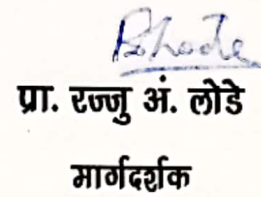 प्रा. रज्जु अं. लोडे
मार्गदर्शक